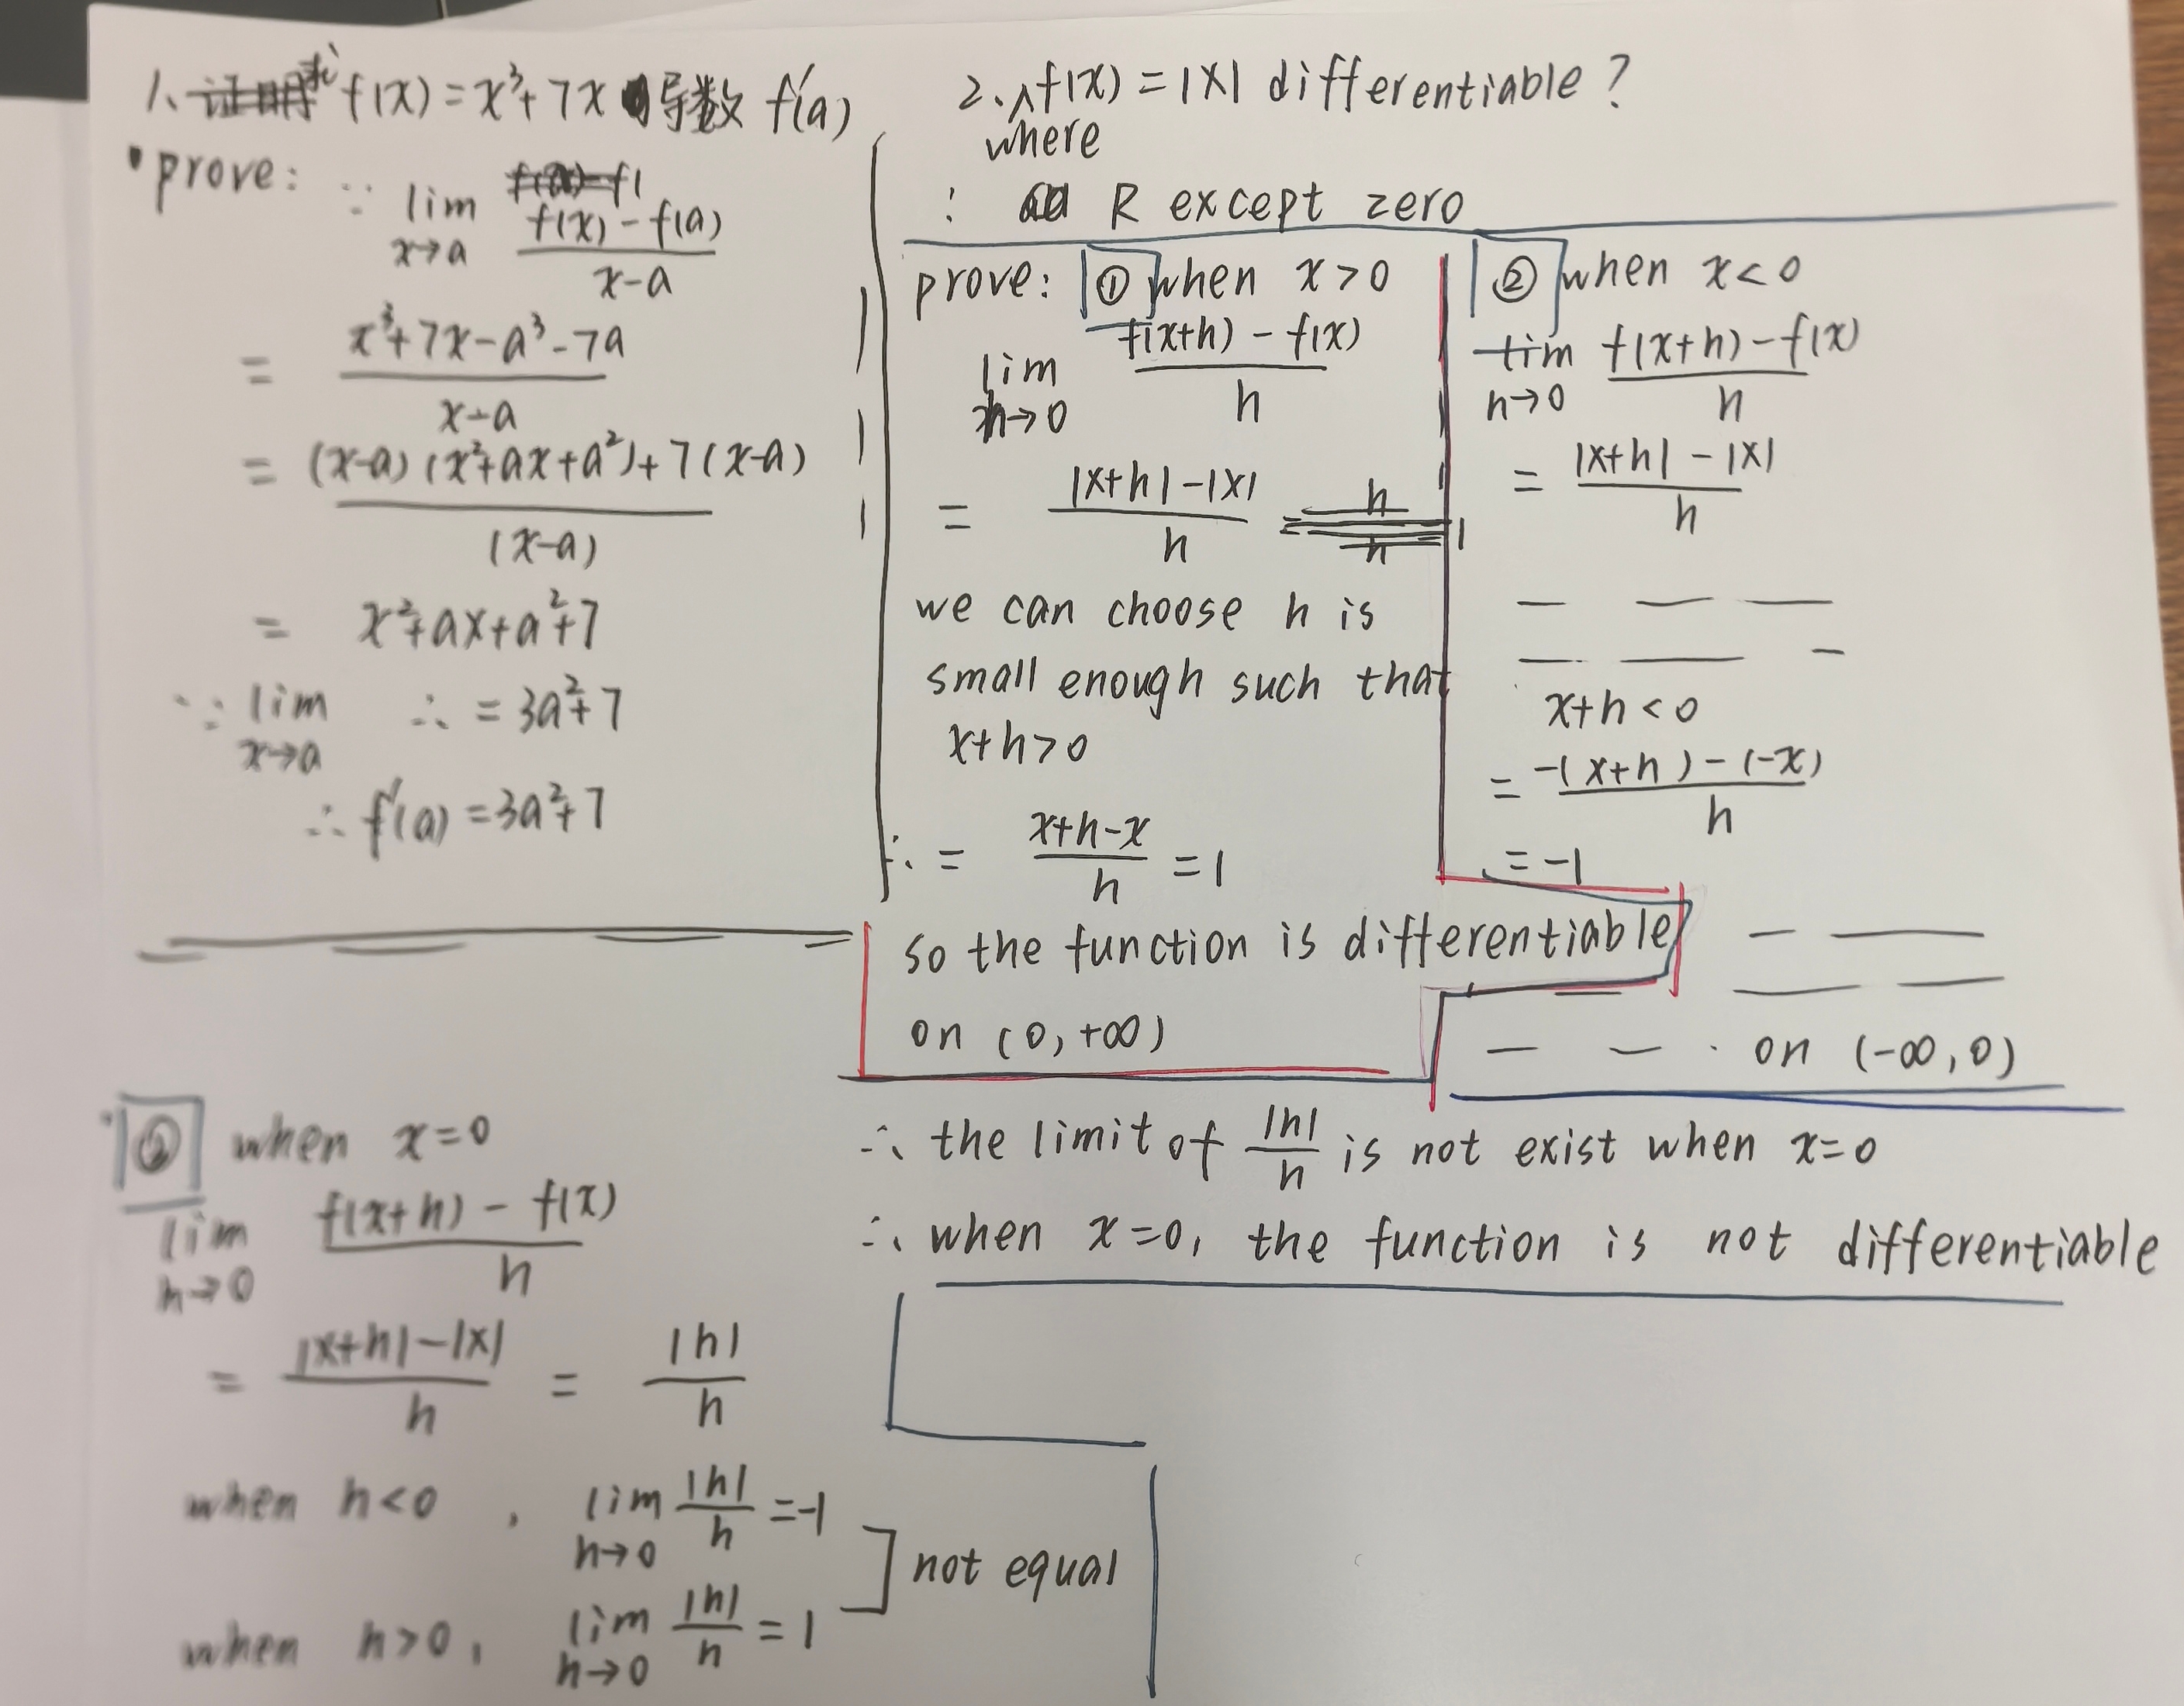 1、求 f(x) = x³+7x 导数 f'(a)
prove: ∵ lim x→a (f(x)-f(a))/(x-a)
= (x³+7x-a³-7a)/(x-a)
= ((x-a)(x²+ax+a²)+7(x-a))/(x-a)
= x²+ax+a²+7
∵ lim x→a ∴ = 3a²+7
∴ f'(a) = 3a²+7
2. where f(x) = |x| differentiable ?
: R except zero
prove: ① when x>0
lim h→0 (f(x+h)-f(x))/h
= (|x+h|-|x|)/h
we can choose h is
small enough such that
x+h>0
∴ = (x+h-x)/h = 1
so the function is differentiable
on (0, +∞)
② when x<0
lim h→0 (f(x+h)-f(x))/h
= (|x+h|-|x|)/h
x+h<0
= (-(x+h)-(-x))/h
= -1
on (-∞, 0)
when x=0
lim h→0 (f(x+h)-f(x))/h
= (|x+h|-|x|)/h = |h|/h
when h<0 , lim h→0 |h|/h = -1
when h>0, lim h→0 |h|/h = 1
not equal
∴ the limit of |h|/h is not exist when x=0
∴ when x=0, the function is not differentiable